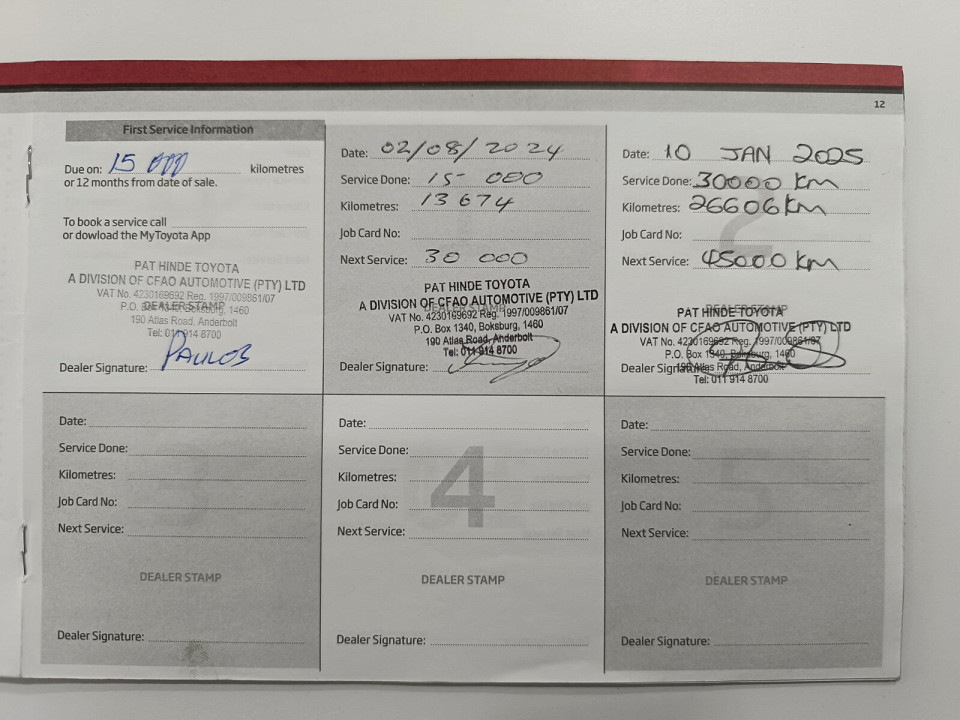 12
First Service Information
Due on: 15 000 kilometres
or 12 months from date of sale.
To book a service call
or dowload the MyToyota App
PAT HINDE TOYOTA
A DIVISION OF CFAO AUTOMOTIVE (PTY) LTD
VAT No. 4230169692 Reg. 1997/009861/07
DEALER STAMP
P.O. Box 1340, Boksburg, 1460
190 Atlas Road, Anderbolt
Tel: 011 914 8700
Dealer Signature: PAULOS
Date: 02/08/2024
Service Done: 15 000
Kilometres: 13 674
Job Card No:
Next Service: 30 000
PAT HINDE TOYOTA
DEALER STAMP
A DIVISION OF CFAO AUTOMOTIVE (PTY) LTD
VAT No. 4230169692 Reg. 1997/009861/07
P.O. Box 1340, Boksburg, 1460
190 Atlas Road, Anderbolt
Tel: 011 914 8700
Dealer Signature:
2
Date: 10 JAN 2025
Service Done: 30000 km
Kilometres: 26606 km
Job Card No:
Next Service: 45000 km
DEALER STAMP
PAT HINDE TOYOTA
A DIVISION OF CFAO AUTOMOTIVE (PTY) LTD
VAT No. 4230169692 Reg. 1997/009861/07
P.O. Box 1340, Boksburg, 1460
Dealer Signature:
190 Atlas Road, Anderbolt
Tel: 011 914 8700
Date:
Service Done:
Kilometres:
Job Card No:
Next Service:
DEALER STAMP
Dealer Signature:
4
Date:
Service Done:
Kilometres:
Job Card No:
Next Service:
DEALER STAMP
Dealer Signature:
Date:
Service Done:
Kilometres:
Job Card No:
Next Service:
DEALER STAMP
Dealer Signature: